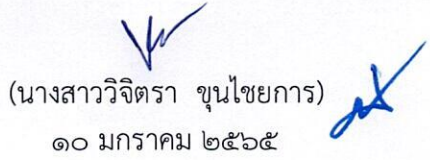 (นางสาววิจิตรา ขุนไชยการ)
๑๐ มกราคม ๒๕๖๕